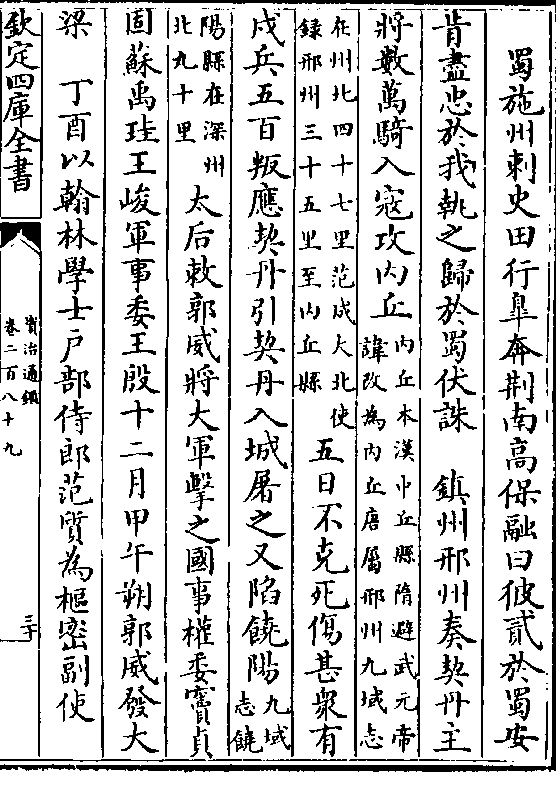 蜀施州刺史田行臯奔荆南高保融曰彼貳於蜀安
肯盡忠於我執之歸於蜀伏誅　鎮州邢州奏契丹主
將數萬騎入寇攻内丘内丘本漢中丘縣隋避武元帝諱改為内丘唐屬邢州九域志
在州北四十七里范成大北使録邢州三十五里至内丘縣五日不克死傷甚衆有
戍兵五百叛應契丹引契丹入城屠之又陷饒陽九域志饒
陽縣在深州北九十里太后敕郭威將大軍擊之國事權委竇貞
固蘇禹珪王峻軍事委王殷十二月甲午朔郭威發大
梁　丁酉以翰林學士戸部侍郎范質為樞密副使
欽定四庫全書
資治通鑑
卷二百八十九
三十